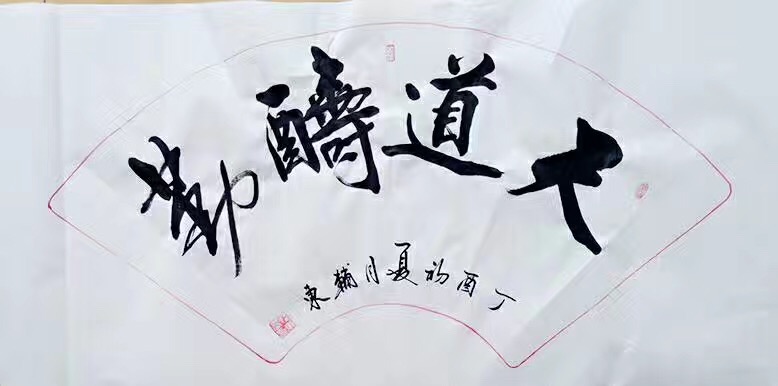 大道醻勤
丁酉初夏月輔東